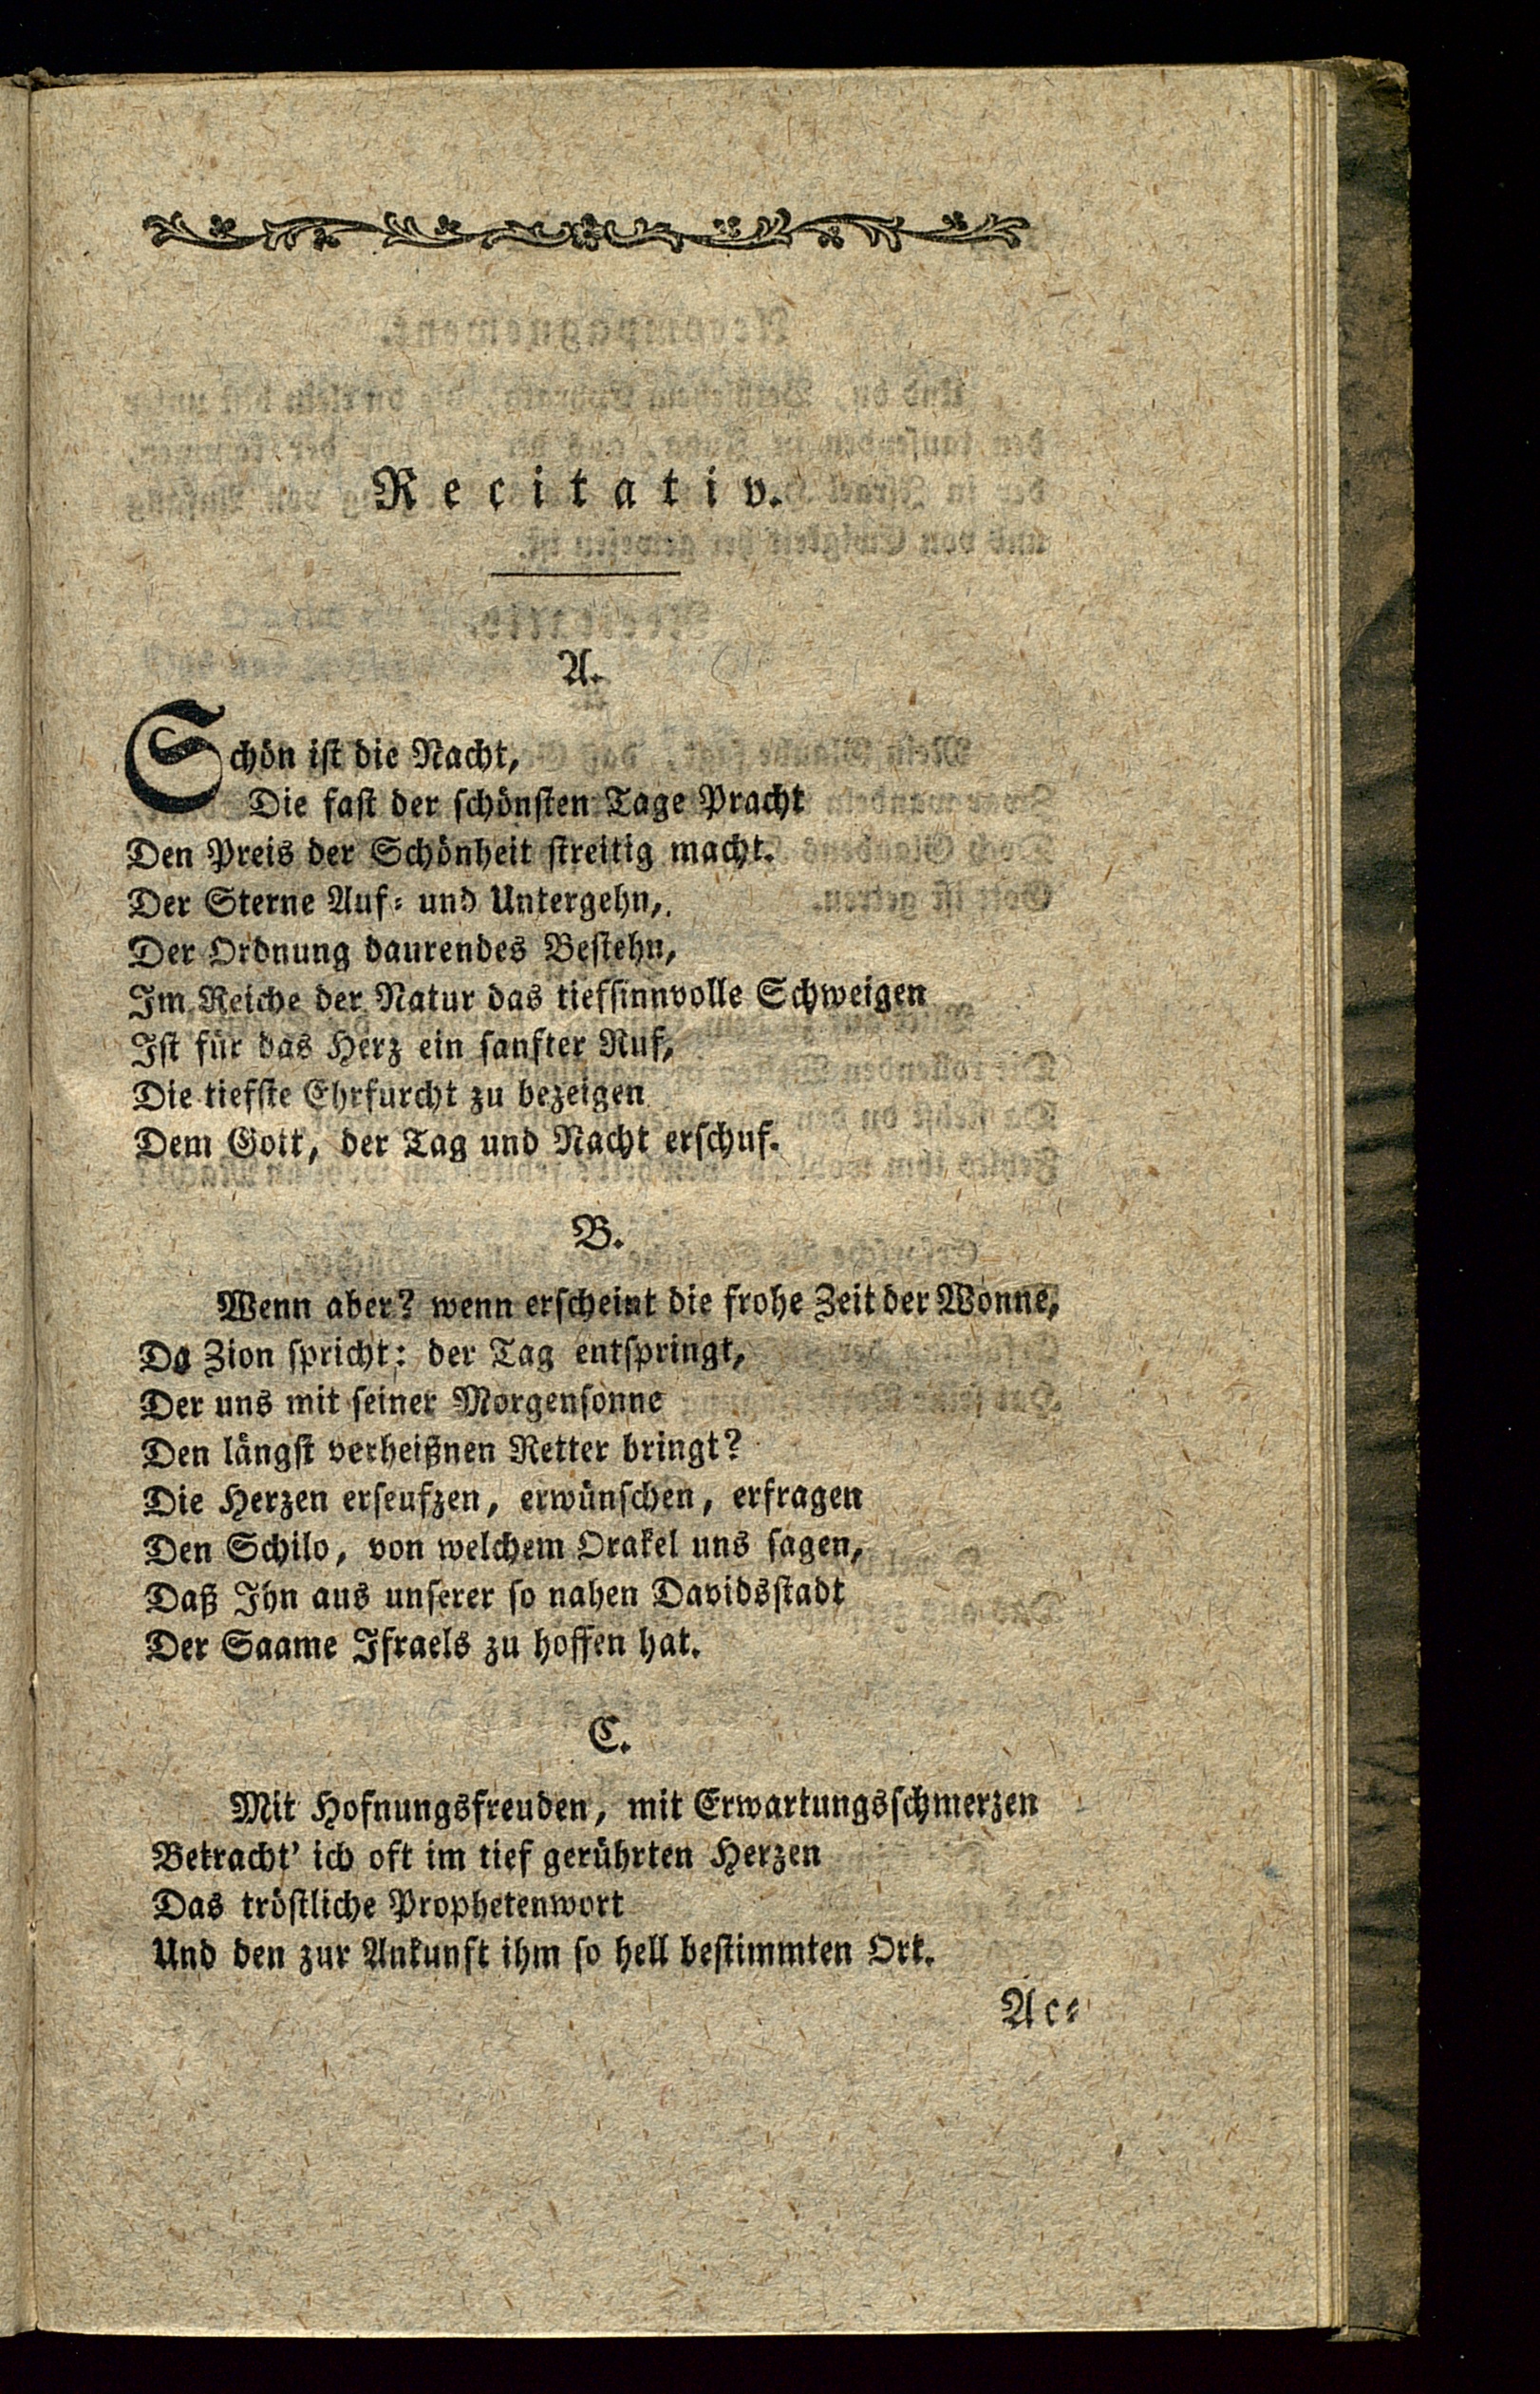 Recitativ.
A.
Schön ist die Nacht,
Die fast der schönsten Tage Pracht
Den Preis der Schönheit streitig macht.
Der Sterne Auf- und Untergehn,
Der Ordnung daurendes Bestehn,
Im Reiche der Natur das tiefsinnvolle Schweigen
Ist für das Herz ein sanfter Ruf,
Die tiefste Ehrfurcht zu bezeigen
Dem Gott, der Tag und Nacht erschuf.
B.
Wenn aber? wenn erscheint die frohe Zeit der Wonne,
Da Zion spricht: der Tag entspringt,
Der uns mit seiner Morgensonne
Den längst verheißnen Retter bringt?
Die Herzen erseufzen, erwünschen, erfragen
Den Schilo, von welchem Orakel uns sagen,
Daß Ihn aus unserer so nahen Davidsstadt
Der Saame Israels zu hoffen hat.
C.
Mit Hofnungsfreuden, mit Erwartungsschmerzen
Betracht' ich oft im tief gerührten Herzen
Das tröstliche Prophetenwort
Und den zur Ankunft ihm so hell bestimmten Ort.
Ac-